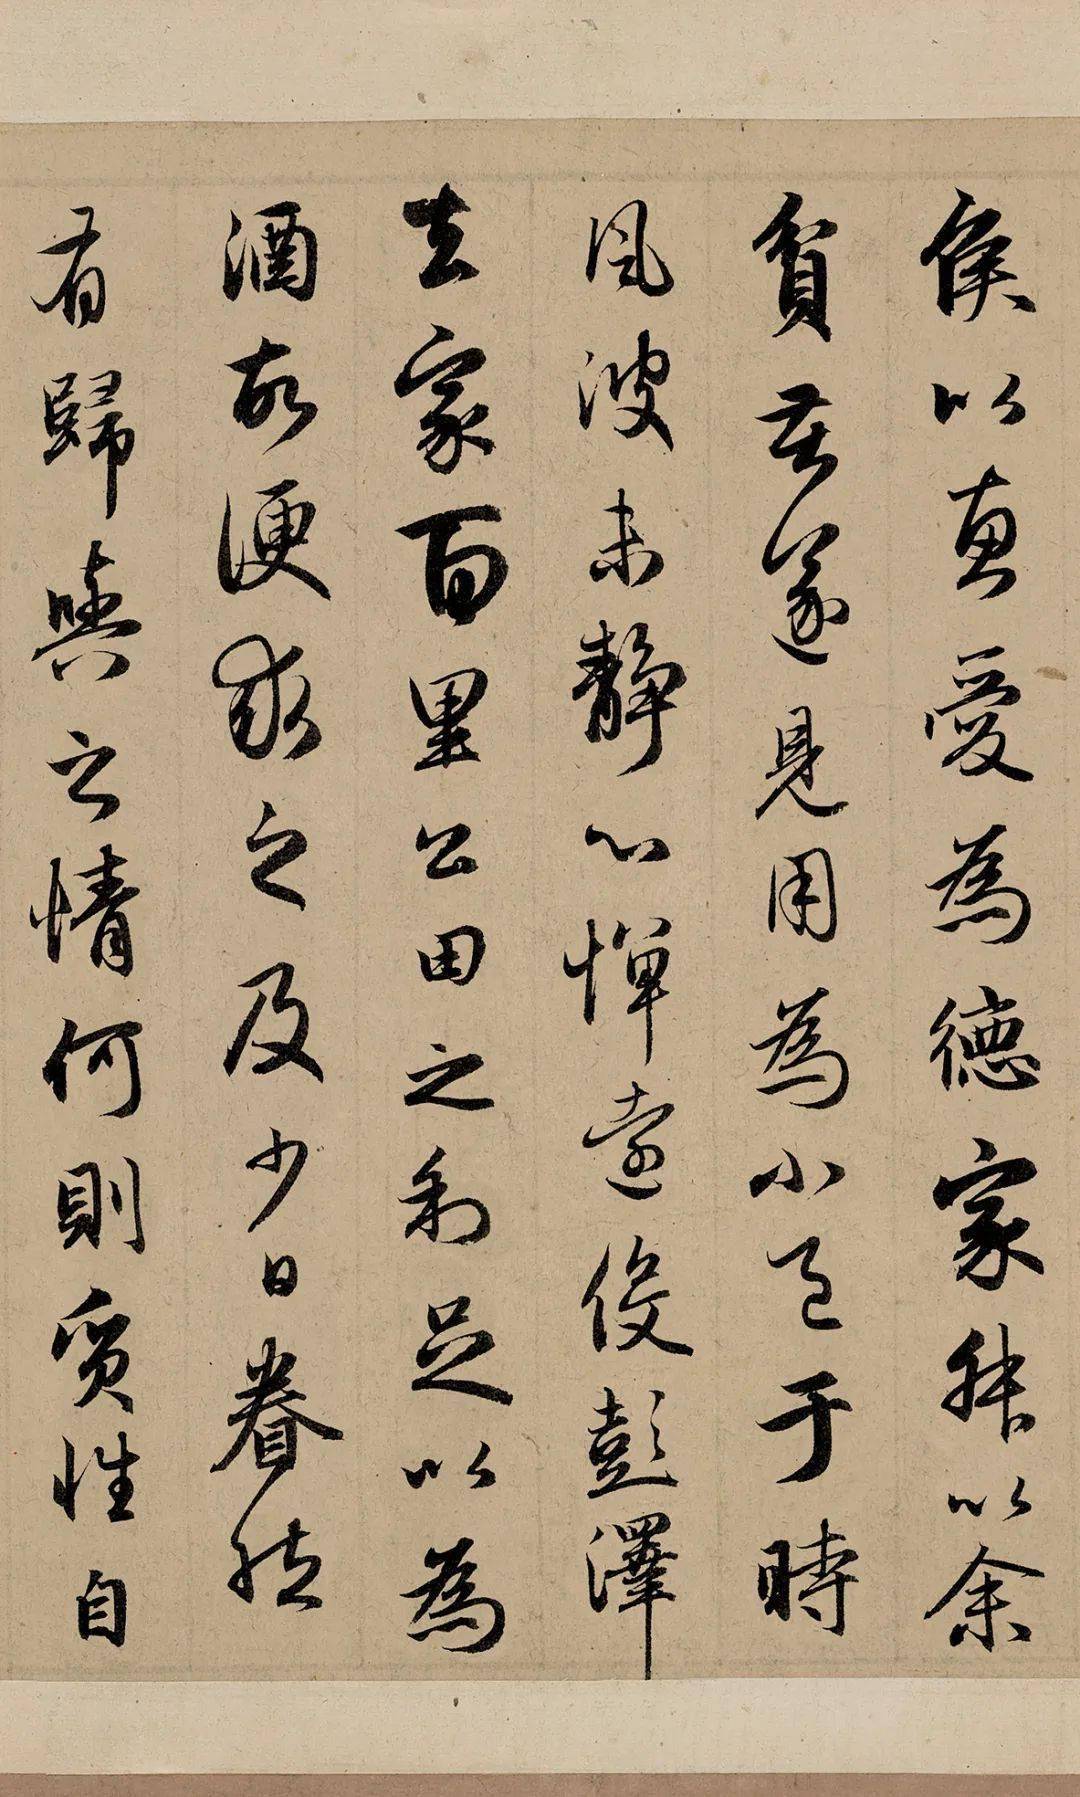 侯以惠愛為德家叔以余
貧苦遂見用為小邑于時
風波未靜心憚遠役彭澤
去家百里公田之利足以為
酒故便求之及少日眷然
有歸與之情何則質性自